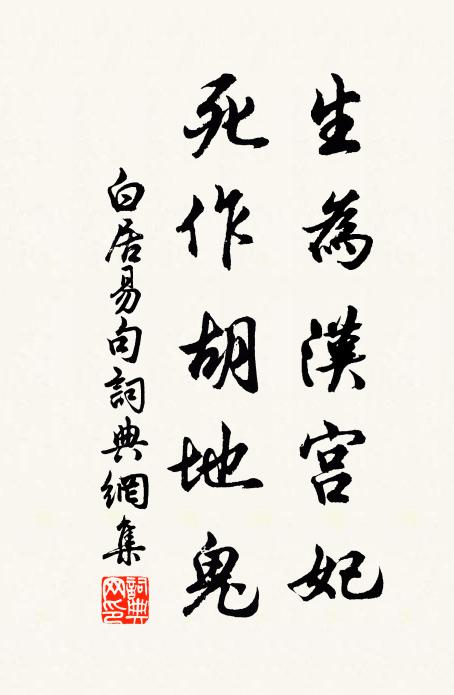 生為漢宮妃
死作胡地鬼
白居易句詞典網集
詞典网印